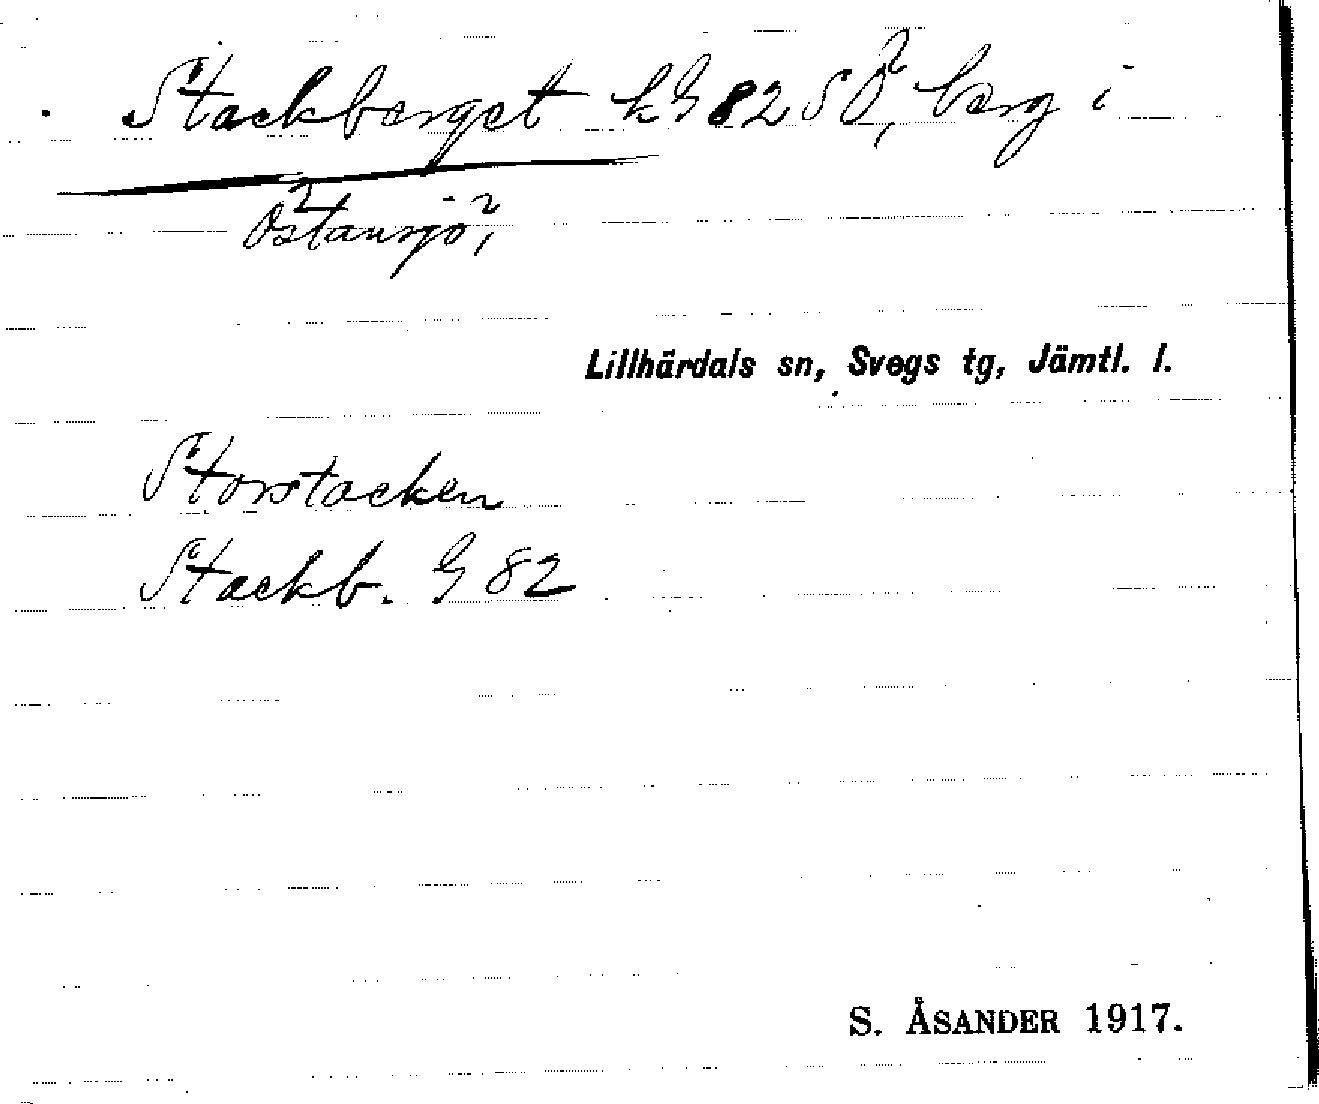 Stackberget kG 82 SÖ, berg i
Östansjö,
Lillhärdals sn, Svegs tg, Jämtl. l.
Storstacken
Stackb. G 82
S. ÅSANDER 1917.